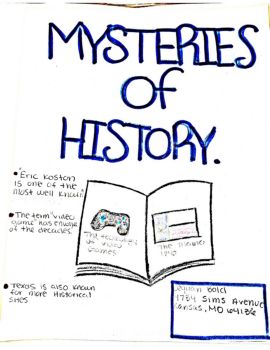 MYSTERIES
OF
HISTORY.
• "Eric Koston
is one of the
most well known"
• The term "video
game" has
of the decades.
• Texas is also known
for more Historical
sites
The
of video
Games
The
bold
1784 Sims Avenue
Kansas, MO 64136